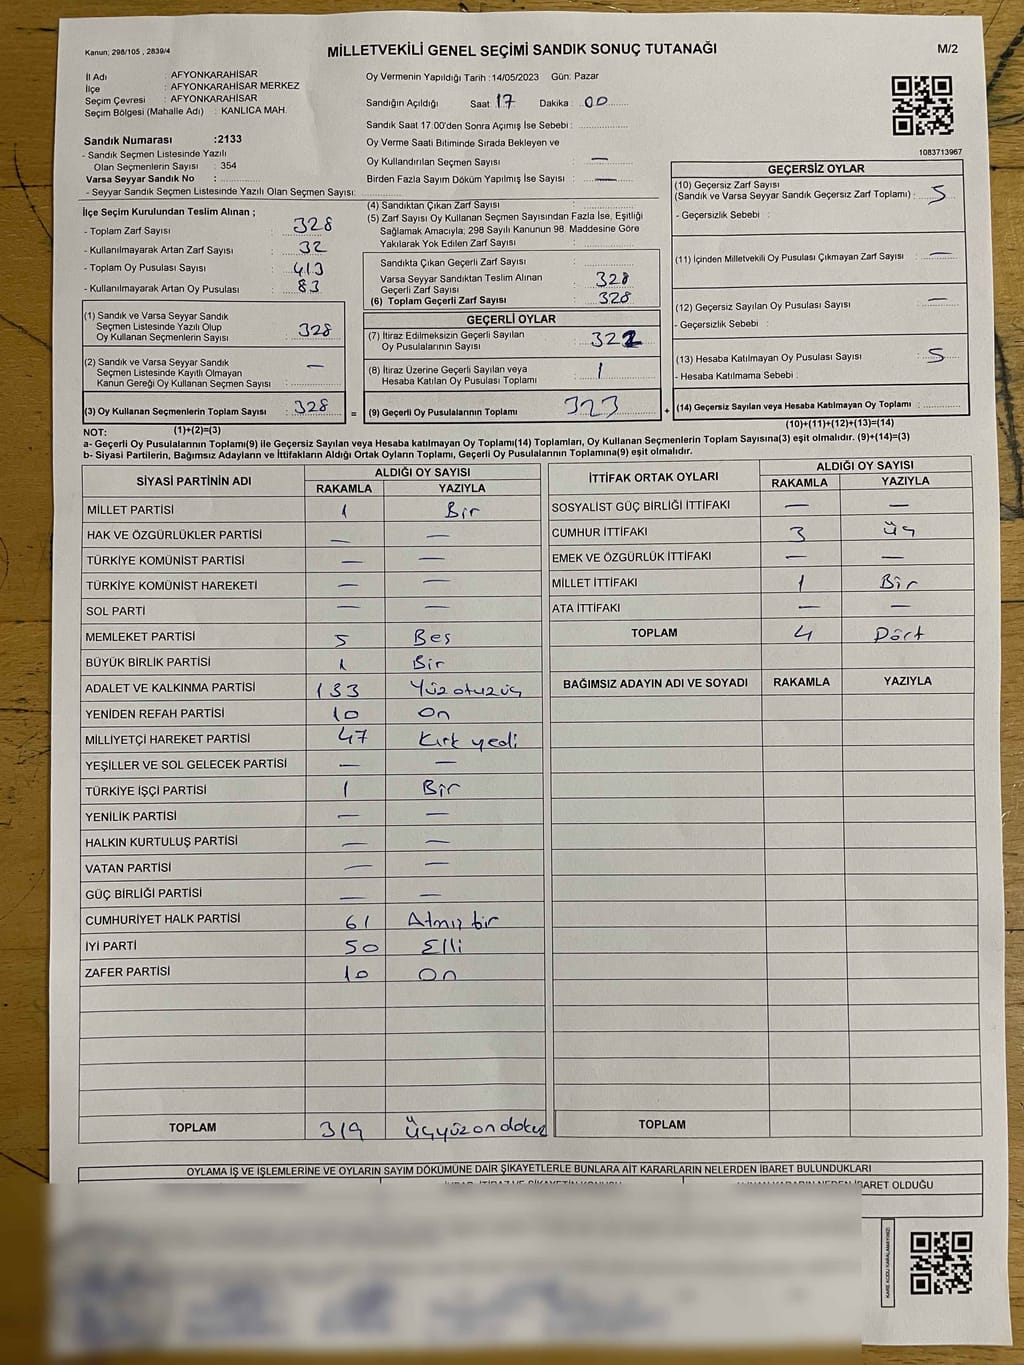 Kanun; 298/105 , 2839/4
MİLLETVEKİLİ GENEL SEÇİMİ SANDIK SONUÇ TUTANAĞI
M/2
İl Adı : AFYONKARAHİSAR
İlçe : AFYONKARAHİSAR MERKEZ
Seçim Çevresi : AFYONKARAHİSAR
Seçim Bölgesi (Mahalle Adı) : KANLICA MAH.
Sandık Numarası :2133
- Sandık Seçmen Listesinde Yazılı
Olan Seçmenlerin Sayısı : 354
Varsa Seyyar Sandık No :
- Seyyar Sandık Seçmen Listesinde Yazılı Olan Seçmen Sayısı:
Oy Vermenin Yapıldığı Tarih :14/05/2023 Gün: Pazar
Sandığın Açıldığı Saat: 17 Dakika : 00
Sandık Saat 17:00'den Sonra Açımış İse Sebebi :
Oy Verme Saati Bitiminde Sırada Bekleyen ve
Oy Kullandırılan Seçmen Sayısı : —
Birden Fazla Sayım Döküm Yapılmış İse Sayısı : —
1083713967
İlçe Seçim Kurulundan Teslim Alınan ;
- Toplam Zarf Sayısı : 328
- Kullanılmayarak Artan Zarf Sayısı : 32
- Toplam Oy Pusulası Sayısı : 413
- Kullanılmayarak Artan Oy Pusulası : 83
(1) Sandık ve Varsa Seyyar Sandık
Seçmen Listesinde Yazılı Olup
Oy Kullanan Seçmenlerin Sayısı : 328
(2) Sandık ve Varsa Seyyar Sandık
Seçmen Listesinde Kayıtlı Olmayan
Kanun Gereği Oy Kullanan Seçmen Sayısı : —
(3) Oy Kullanan Seçmenlerin Toplam Sayısı : 328
(1)+(2)=(3)
(4) Sandıktan Çıkan Zarf Sayısı :
(5) Zarf Sayısı Oy Kullanan Seçmen Sayısından Fazla İse, Eşitliği
Sağlamak Amacıyla; 298 Sayılı Kanunun 98. Maddesine Göre
Yakılarak Yok Edilen Zarf Sayısı :
Sandıkta Çıkan Geçerli Zarf Sayısı :
Varsa Seyyar Sandıktan Teslim Alınan
Geçerli Zarf Sayısı : 328
(6) Toplam Geçerli Zarf Sayısı : 328
GEÇERLİ OYLAR
(7) İtiraz Edilmeksizin Geçerli Sayılan
Oy Pusulalarının Sayısı : 322
(8) İtiraz Üzerine Geçerli Sayılan veya
Hesaba Katılan Oy Pusulası Toplamı : 1
= (9) Geçerli Oy Pusulalarının Toplamı : 323 +
GEÇERSİZ OYLAR
(10) Geçersiz Zarf Sayısı
(Sandık ve Varsa Seyyar Sandık Geçersiz Zarf Toplamı) : 5
- Geçersizlik Sebebi :
(11) İçinden Milletvekili Oy Pusulası Çıkmayan Zarf Sayısı : —
(12) Geçersiz Sayılan Oy Pusulası Sayısı : —
- Geçersizlik Sebebi :
(13) Hesaba Katılmayan Oy Pusulası Sayısı : 5
- Hesaba Katılmama Sebebi :
(14) Geçersiz Sayılan veya Hesaba Katılmayan Oy Toplamı :
(10)+(11)+(12)+(13)=(14)
NOT:
a- Geçerli Oy Pusulalarının Toplamı(9) ile Geçersiz Sayılan veya Hesaba katılmayan Oy Toplamı(14) Toplamları, Oy Kullanan Seçmenlerin Toplam Sayısına(3) eşit olmalıdır. (9)+(14)=(3)
b- Siyasi Partilerin, Bağımsız Adayların ve İttifakların Aldığı Ortak Oyların Toplamı, Geçerli Oy Pusulalarının Toplamına(9) eşit olmalıdır.
SİYASİ PARTİNİN ADI ALDIĞI OY SAYISI
RAKAMLA YAZIYLA
MİLLET PARTİSİ 1 Bir
HAK VE ÖZGÜRLÜKLER PARTİSİ — —
TÜRKİYE KOMÜNİST PARTİSİ — —
TÜRKİYE KOMÜNİST HAREKETİ — —
SOL PARTİ — —
MEMLEKET PARTİSİ 5 Beş
BÜYÜK BİRLİK PARTİSİ 1 Bir
ADALET VE KALKINMA PARTİSİ 133 Yüzotuzüç
YENİDEN REFAH PARTİSİ 10 On
MİLLİYETÇİ HAREKET PARTİSİ 47 Kırk yedi
YEŞİLLER VE SOL GELECEK PARTİSİ — —
TÜRKİYE İŞÇİ PARTİSİ 1 Bir
YENİLİK PARTİSİ — —
HALKIN KURTULUŞ PARTİSİ — —
VATAN PARTİSİ — —
GÜÇ BİRLİĞİ PARTİSİ — —
CUMHURİYET HALK PARTİSİ 61 Atmış bir
İYİ PARTİ 50 Elli
ZAFER PARTİSİ 10 On
TOPLAM 319 Üçyüzondokuz
İTTİFAK ORTAK OYLARI ALDIĞI OY SAYISI
RAKAMLA YAZIYLA
SOSYALİST GÜÇ BİRLİĞİ İTTİFAKI — —
CUMHUR İTTİFAKI 3 Üç
EMEK VE ÖZGÜRLÜK İTTİFAKI — —
MİLLET İTTİFAKI 1 Bir
ATA İTTİFAKI — —
TOPLAM 4 Dört
BAĞIMSIZ ADAYIN ADI VE SOYADI RAKAMLA YAZIYLA
TOPLAM
OYLAMA İŞ VE İŞLEMLERİNE VE OYLARIN SAYIM DÖKÜMÜNE DAİR ŞİKAYETLERLE BUNLARA AİT KARARLARIN NELERDEN İBARET BULUNDUKLARI
İBARET OLDUĞU
KARE KODU KARALAMAYINIZ!